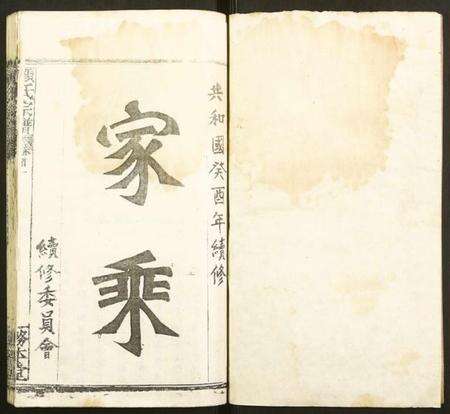 共和國癸酉年續修
家乘
續修委員會